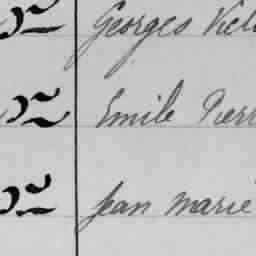 Georges Vict
Emile Pierr
Jean Marie